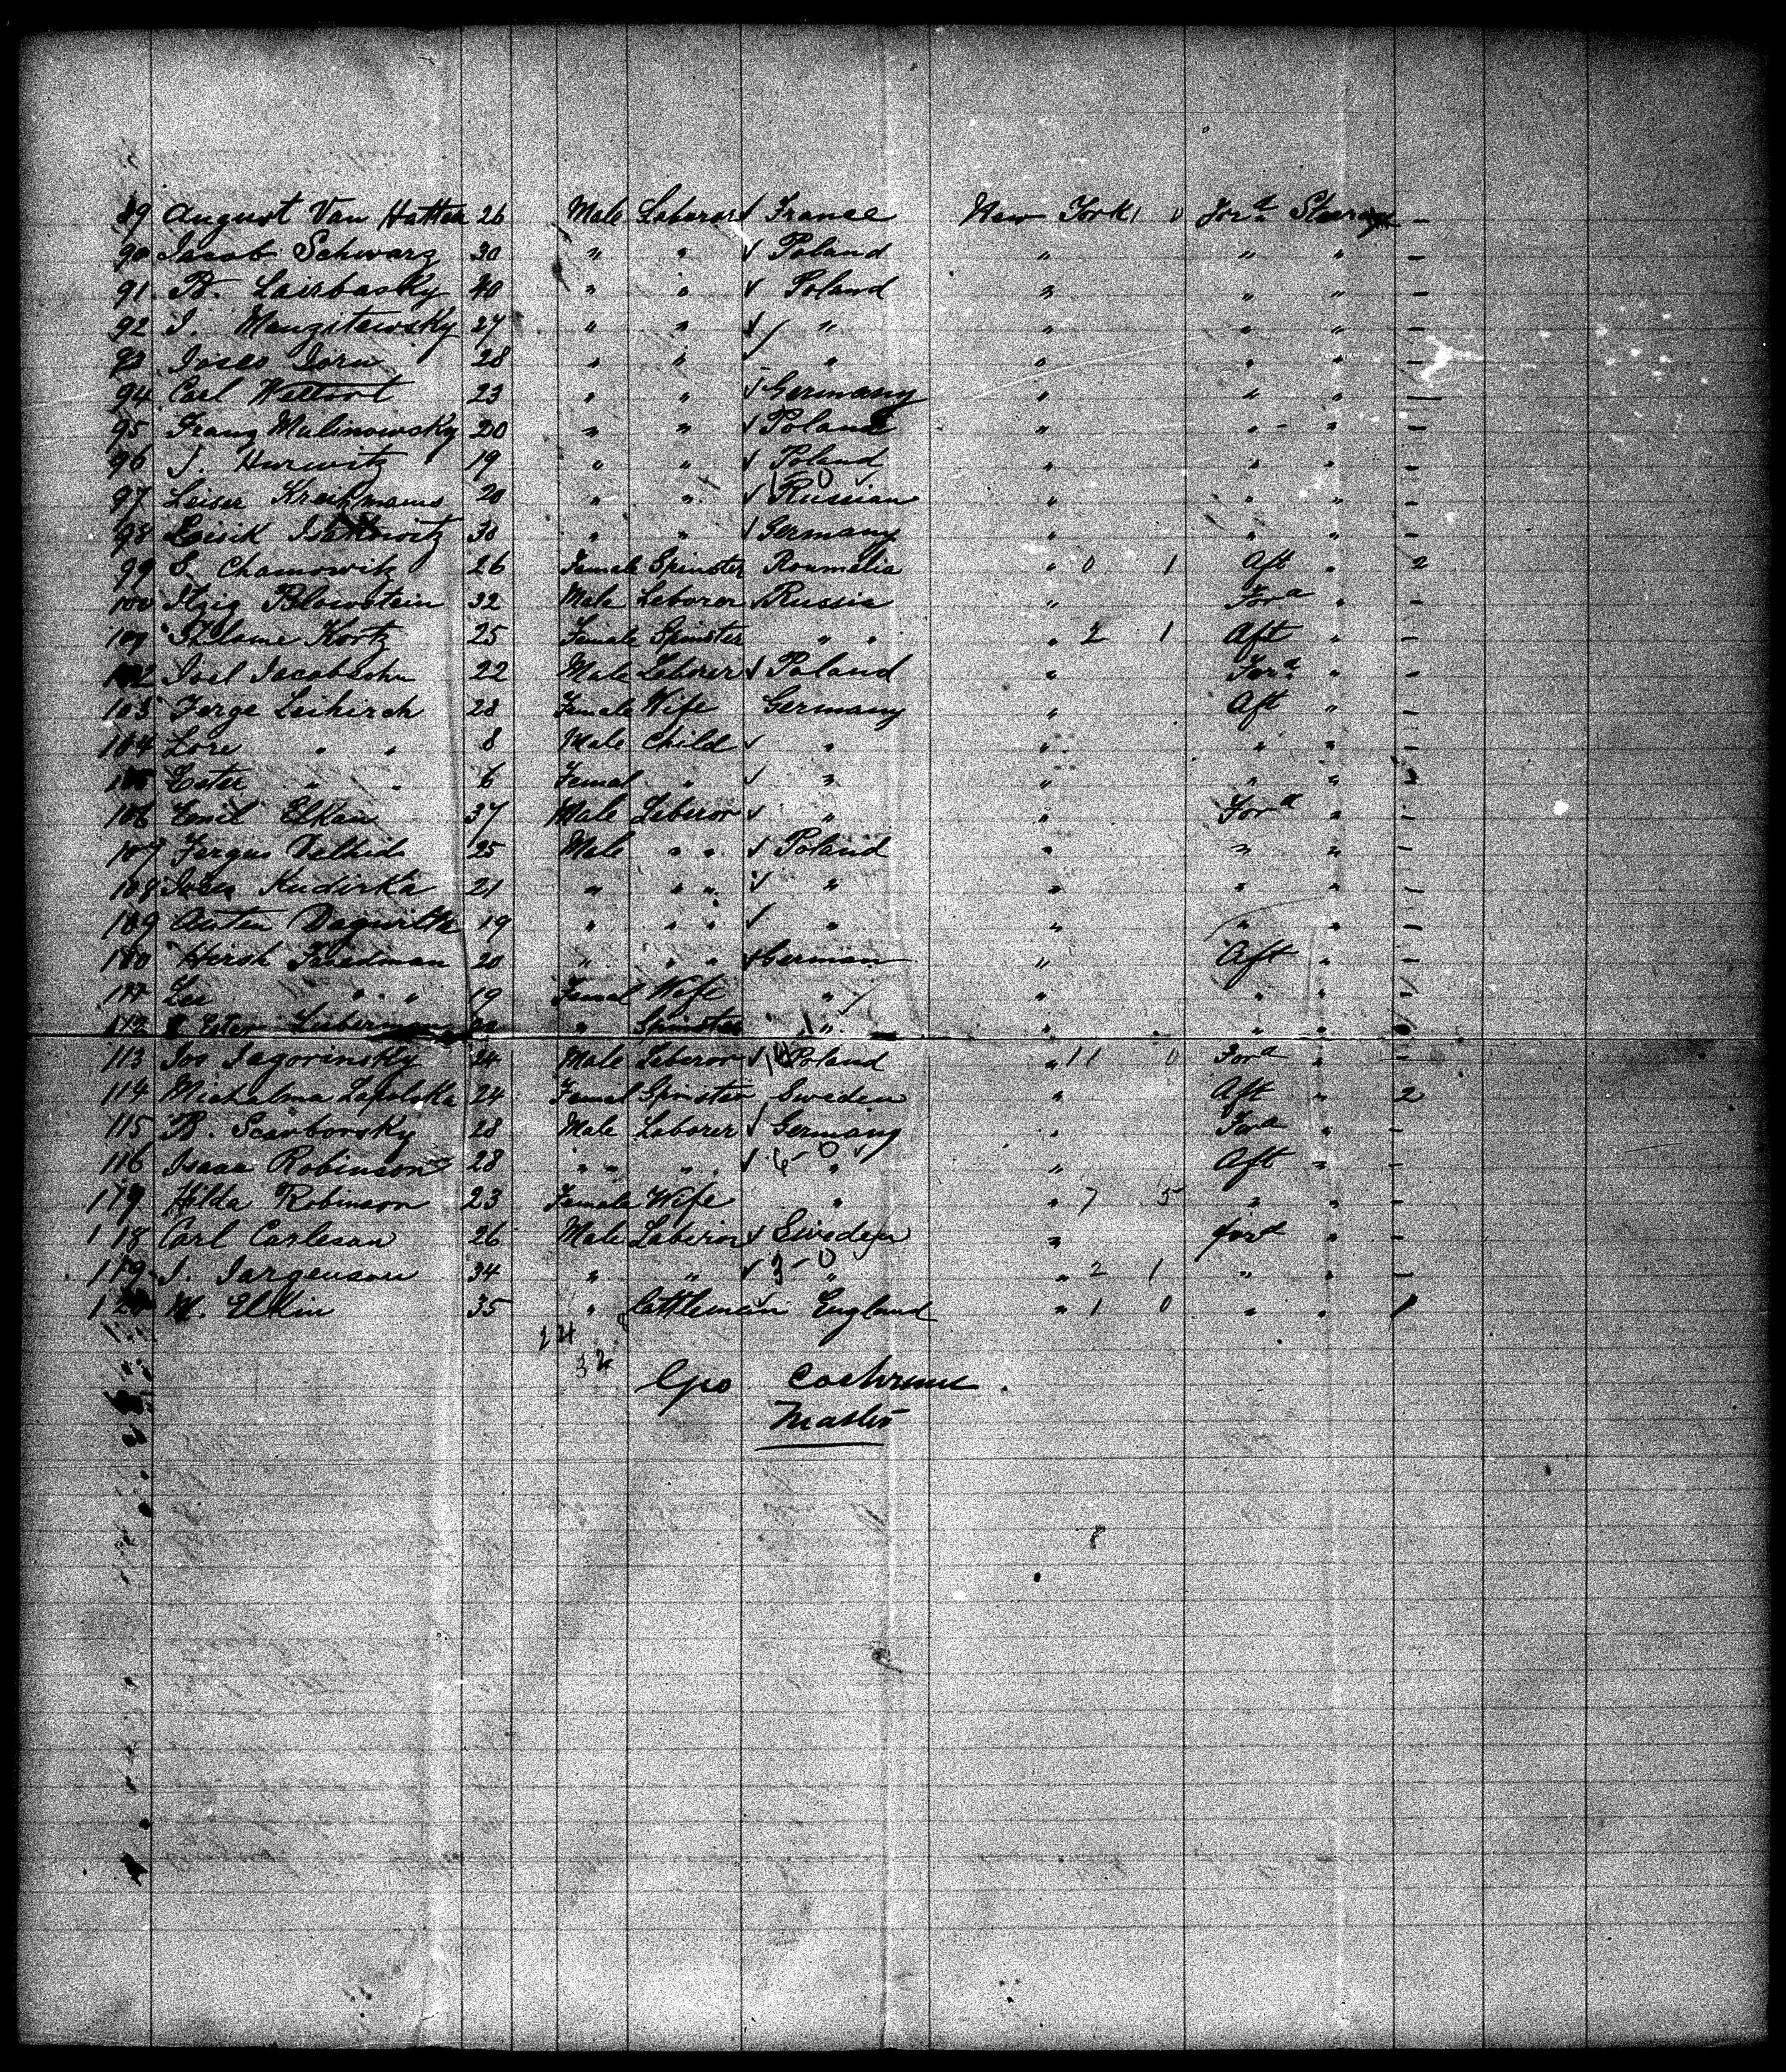 89 August Van Hatten 26 Male Laberor √ France New York 1 0 Forᵈ Steerage –
90 Jacob Schwarz 30 " " √ Poland " " " –
91 B. Lairbasky 40 " " √ Poland " " " –
92 I. Manzitewsky 27 " " √ " " " " –
93 Dorn 28 " " √ " " " " –
94 Carl Wettort 23 " " √ Germany " " " –
95 Franz Malinowsky 20 " " √ Poland " " " –
96 J. Hurwitz 19 " " √ Poland " " " –
97 Leiser 20 " " √ Russian " " " –
98 Leisik Isakowitz 30 " " √ Germany " " " –
99 S. Chamowitz 26 Female Spinster Roumelia " 0 1 Aft " 2
100 Itzig Blowstein 32 Male Leborer √ Russia " Forᵈ " –
101 Kortz 25 Female Spinster " " " 2 1 Aft " –
102 Joel Jacobsohn 22 Male Leborer √ Poland " Forᵈ " –
103 Ferge Leihirch 28 Female Wife Germany " Aft " –
104 Lore " " 8 Male Child √ " " " " –
105 Ester " " 6 Femal " √ " " " " –
106 Emil Elkan 37 Male Leberor √ " " Forᵈ " –
107 Fergus 25 Male " " √ Poland " " " –
108 Kudirka 21 " " " √ " " " " –
109 Dagwilka 19 " " " √ " " " " –
110 Hersh Friedman 20 " " " √ German " Aft " –
111 Lee " " 19 Femal Wife " " " " –
112 Ester Lieberman " Spinster " " " "
113 Jos Jagorinsky 24 Male Leberor √ Poland " 11 0 Forᵈ " –
114 Michalina Lapolska 24 Femal Spinster Sweden " Aft " 2
115 B. Scarborsky 28 Male Laborer √ Germany " Forᵈ " –
116 Isaac Robinson 28 " " " " √ 6-0 √ " " Aft " –
117 Hilda Robinson 23 Female Wife " " 7 5 " " –
118 Carl Carlesan 26 Male Laberor √ Sweden " forᵈ " –
119 J. Jorgenson 34 " " √ 3-0 " " 2 1 " " –
120 M. Elkin 35 " Cattleman England " 1 0 " " 1
24
32
Geo Cochrane.
Master
8